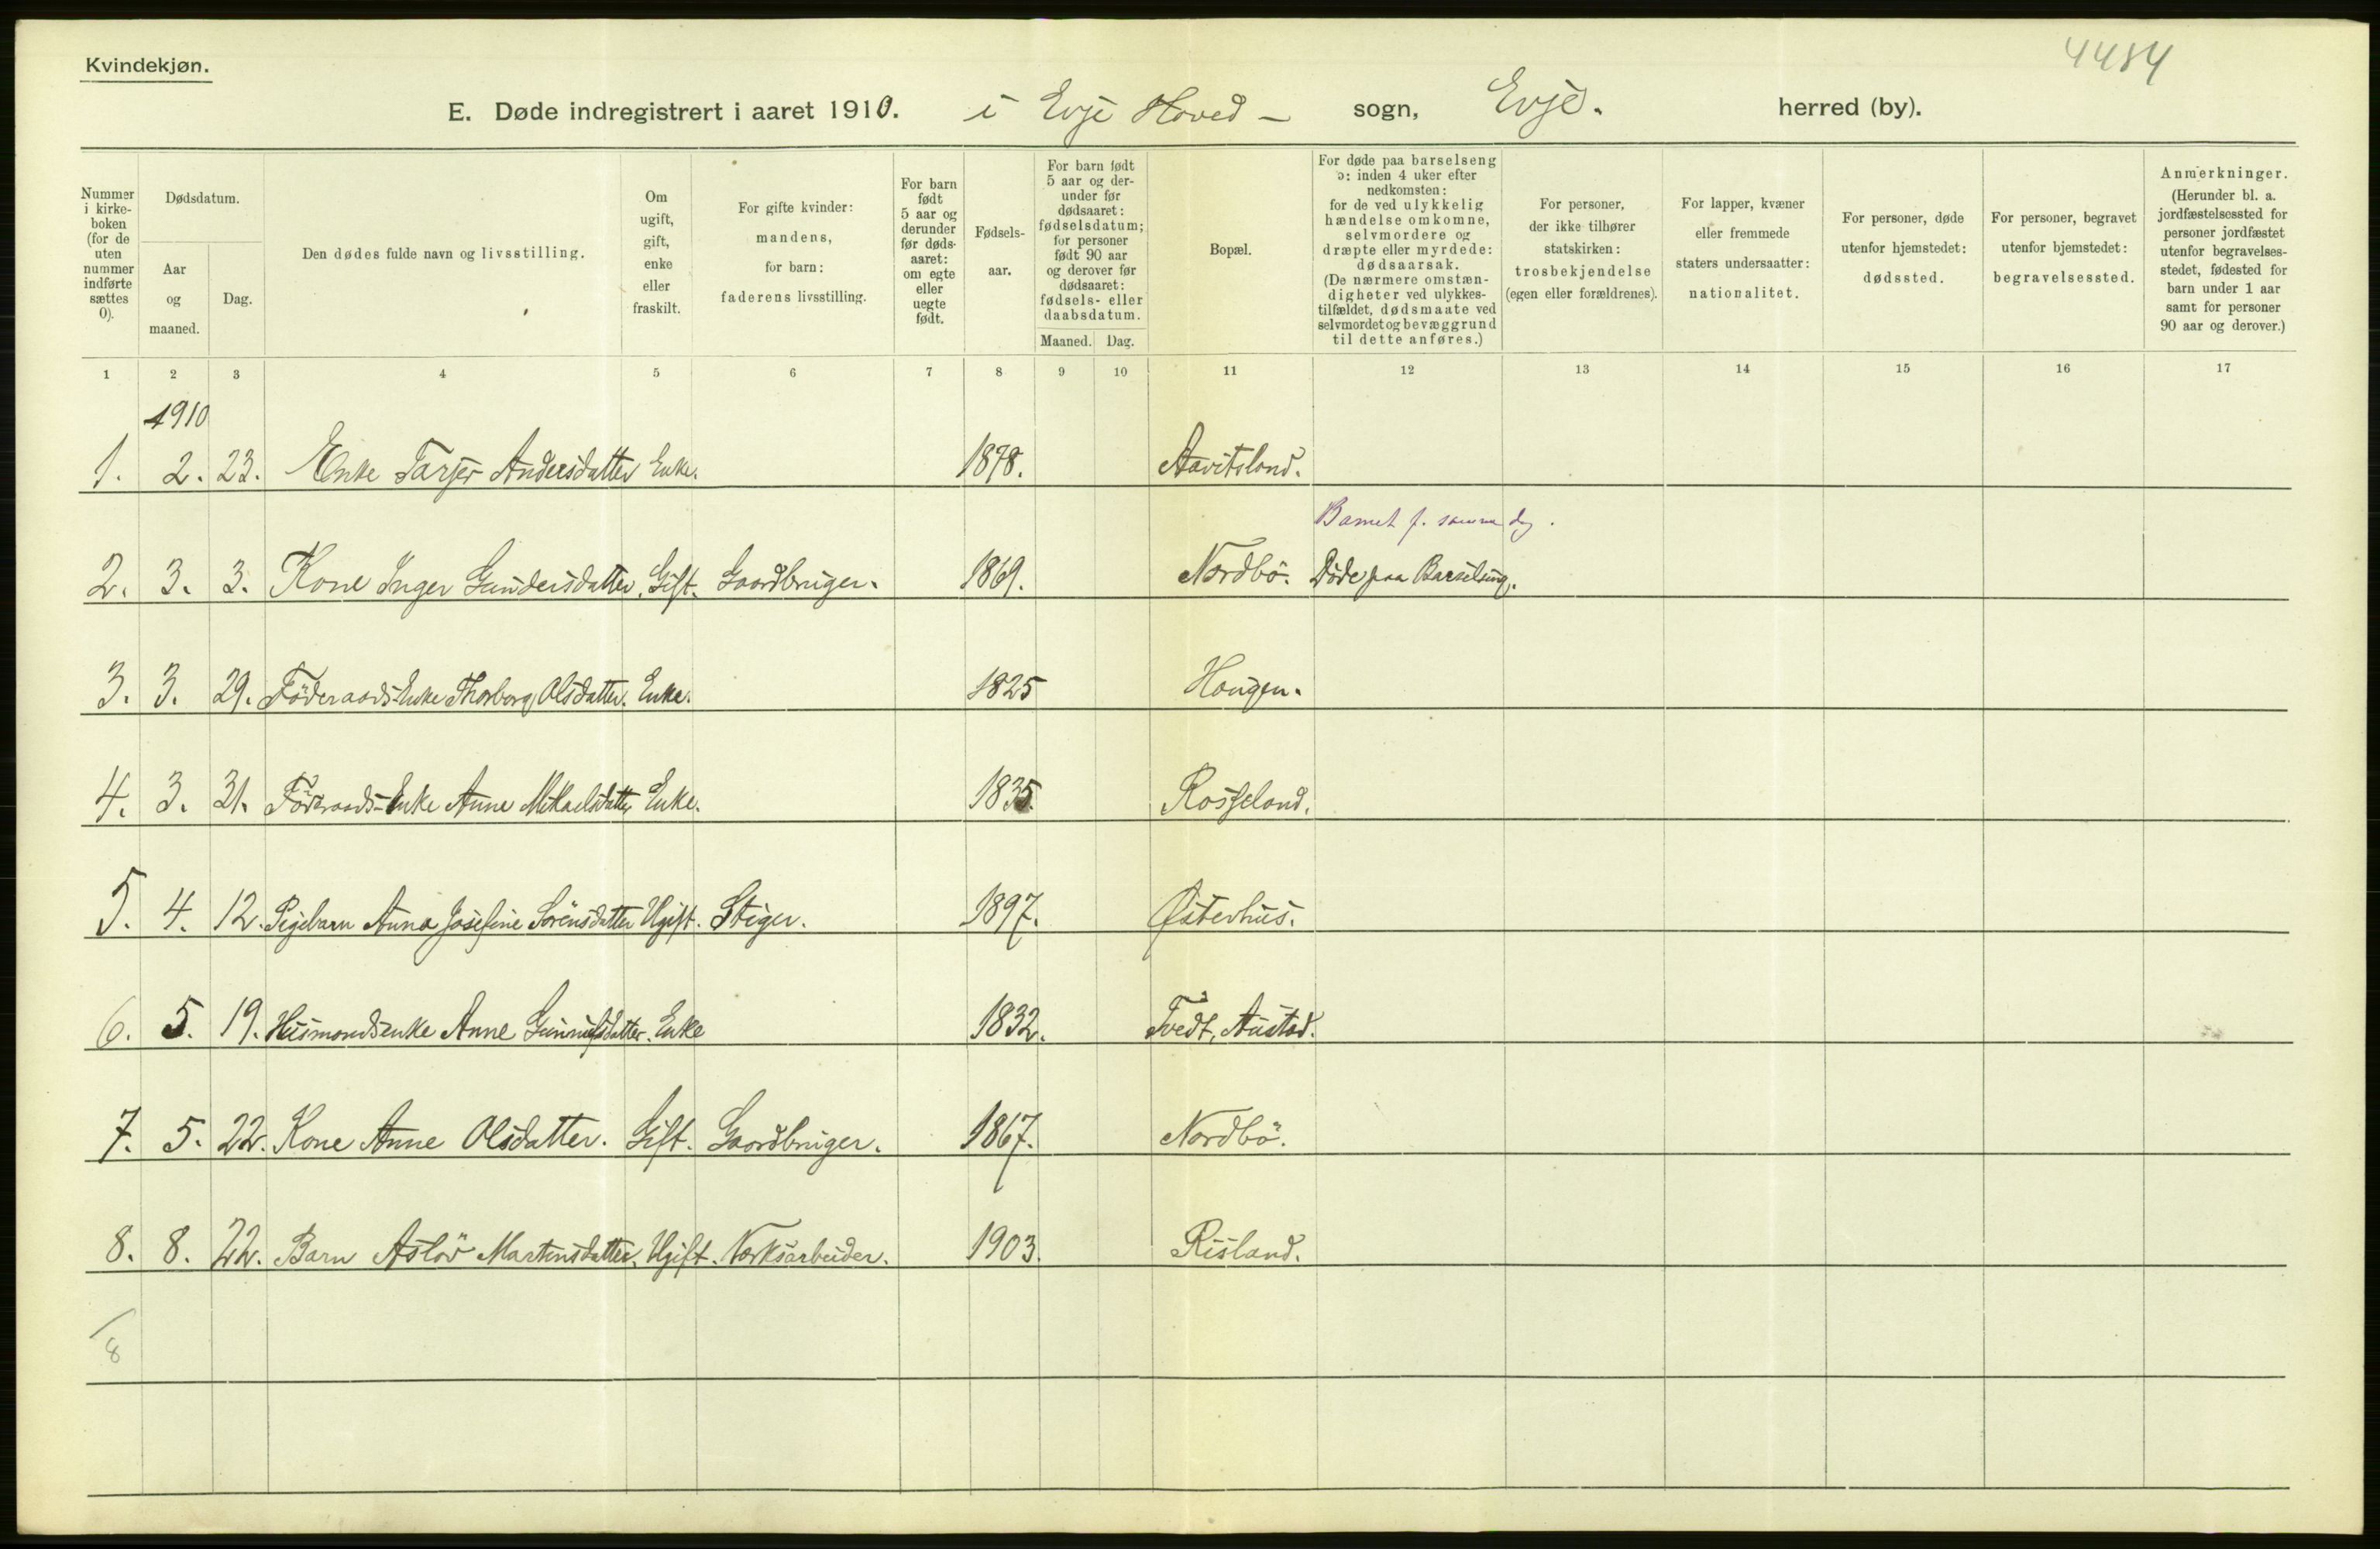 Kvindekjøn.
4484
E. Døde indregistrert i aaret 1910. i Evje Hoved- sogn, Evje. herred (by).
Nummer i kirke- boken (for de uten nummer indførte sættes 0).
Dødsdatum.
Aar og maaned.
Dag.
Den dødes fulde navn og livsstilling.
Om ugift, gift, enke eller fraskilt.
For gifte kvinder: mandens, for barn: faderens livsstilling.
For barn født 5 aar og derunder før døds- aaret: om egte eller uegte født.
Fødsels- aar.
For barn født 5 aar og der- under før dødsaaret: fødselsdatum; for personer født 90 aar og derover før dødsaaret: fødsels- eller daabsdatum.
Maaned. Dag.
Bopæl.
For døde paa barselseng ɔ: inden 4 uker efter nedkomsten: for de ved ulykkelig hændelse omkomne, selvmordere og dræpte eller myrdede: dødsaarsak. (De nærmere omstæn- digheter ved ulykkes- tilfældet, dødsmaate ved selvmordet og bevæggrund til dette anføres.)
For personer, der ikke tilhører statskirken: trosbekjendelse (egen eller forældrenes).
For lapper, kvæner eller fremmede staters undersaatter: nationalitet.
For personer, døde utenfor hjemstedet: dødssted.
For personer, begravet utenfor bjemstedet: begravelsessted.
Anmerkninger. (Herunder bl. a. jordfæstelsessted for personer jordfæstet utenfor begravelses- stedet, fødested for barn under 1 aar samt for personer 90 aar og derover.)
1 2 3 4 5 6 7 8 9 10 11 12 13 14 15 16 17
1910
1. 2. 23. Enke Tarjer Andersdatter Enke. 1878. Aavitsland.
Barnet f. samme dag.
2. 3. 3. Kone Inger Gundersdatter. Gift. Gaardbruger. 1869. Nordbö. Döde paa Barselseng.
3. 3. 29. Föderaads-Enke Thorborg Olsdatter. Enke. 1825 Hougen.
4. 3. 31. Föderaads-Enke Anne Mikaelsdatter Enke. 1835. Rosseland.
5. 4. 12. Pigebarn Anna Josefine Sörensdatter Ugift. Stiger. 1897. Østerhus.
6. 5. 19. Husmandsenke Anne Gunnulfsdatter. Enke 1832. Tvedt, Austad.
7. 5. 22. Kone Anne Olsdatter. Gift. Gaardbruger. 1867. Nordbö.
8. 8. 22. Barn Aslöv Martinsdatter. Ugift. Værksarbeider. 1903. Risland.
8